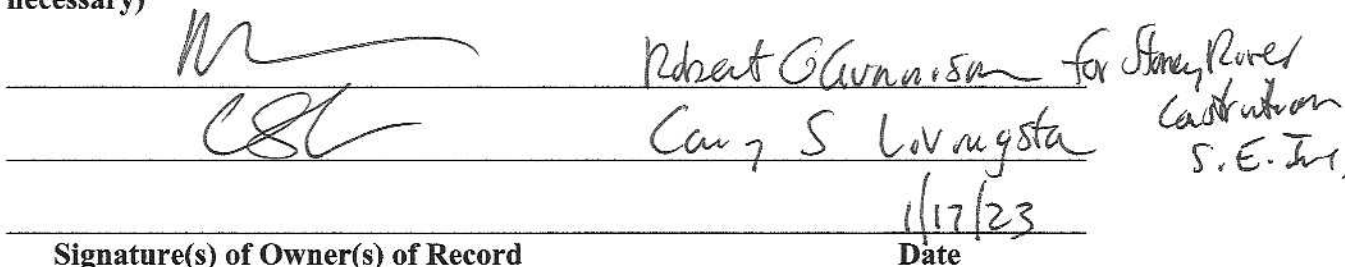 necessary)
Robert G Gunnison for Stoney River
Construction
S.E. Inc,
Cary S Livingston
1/17/23
Signature(s) of Owner(s) of Record Date